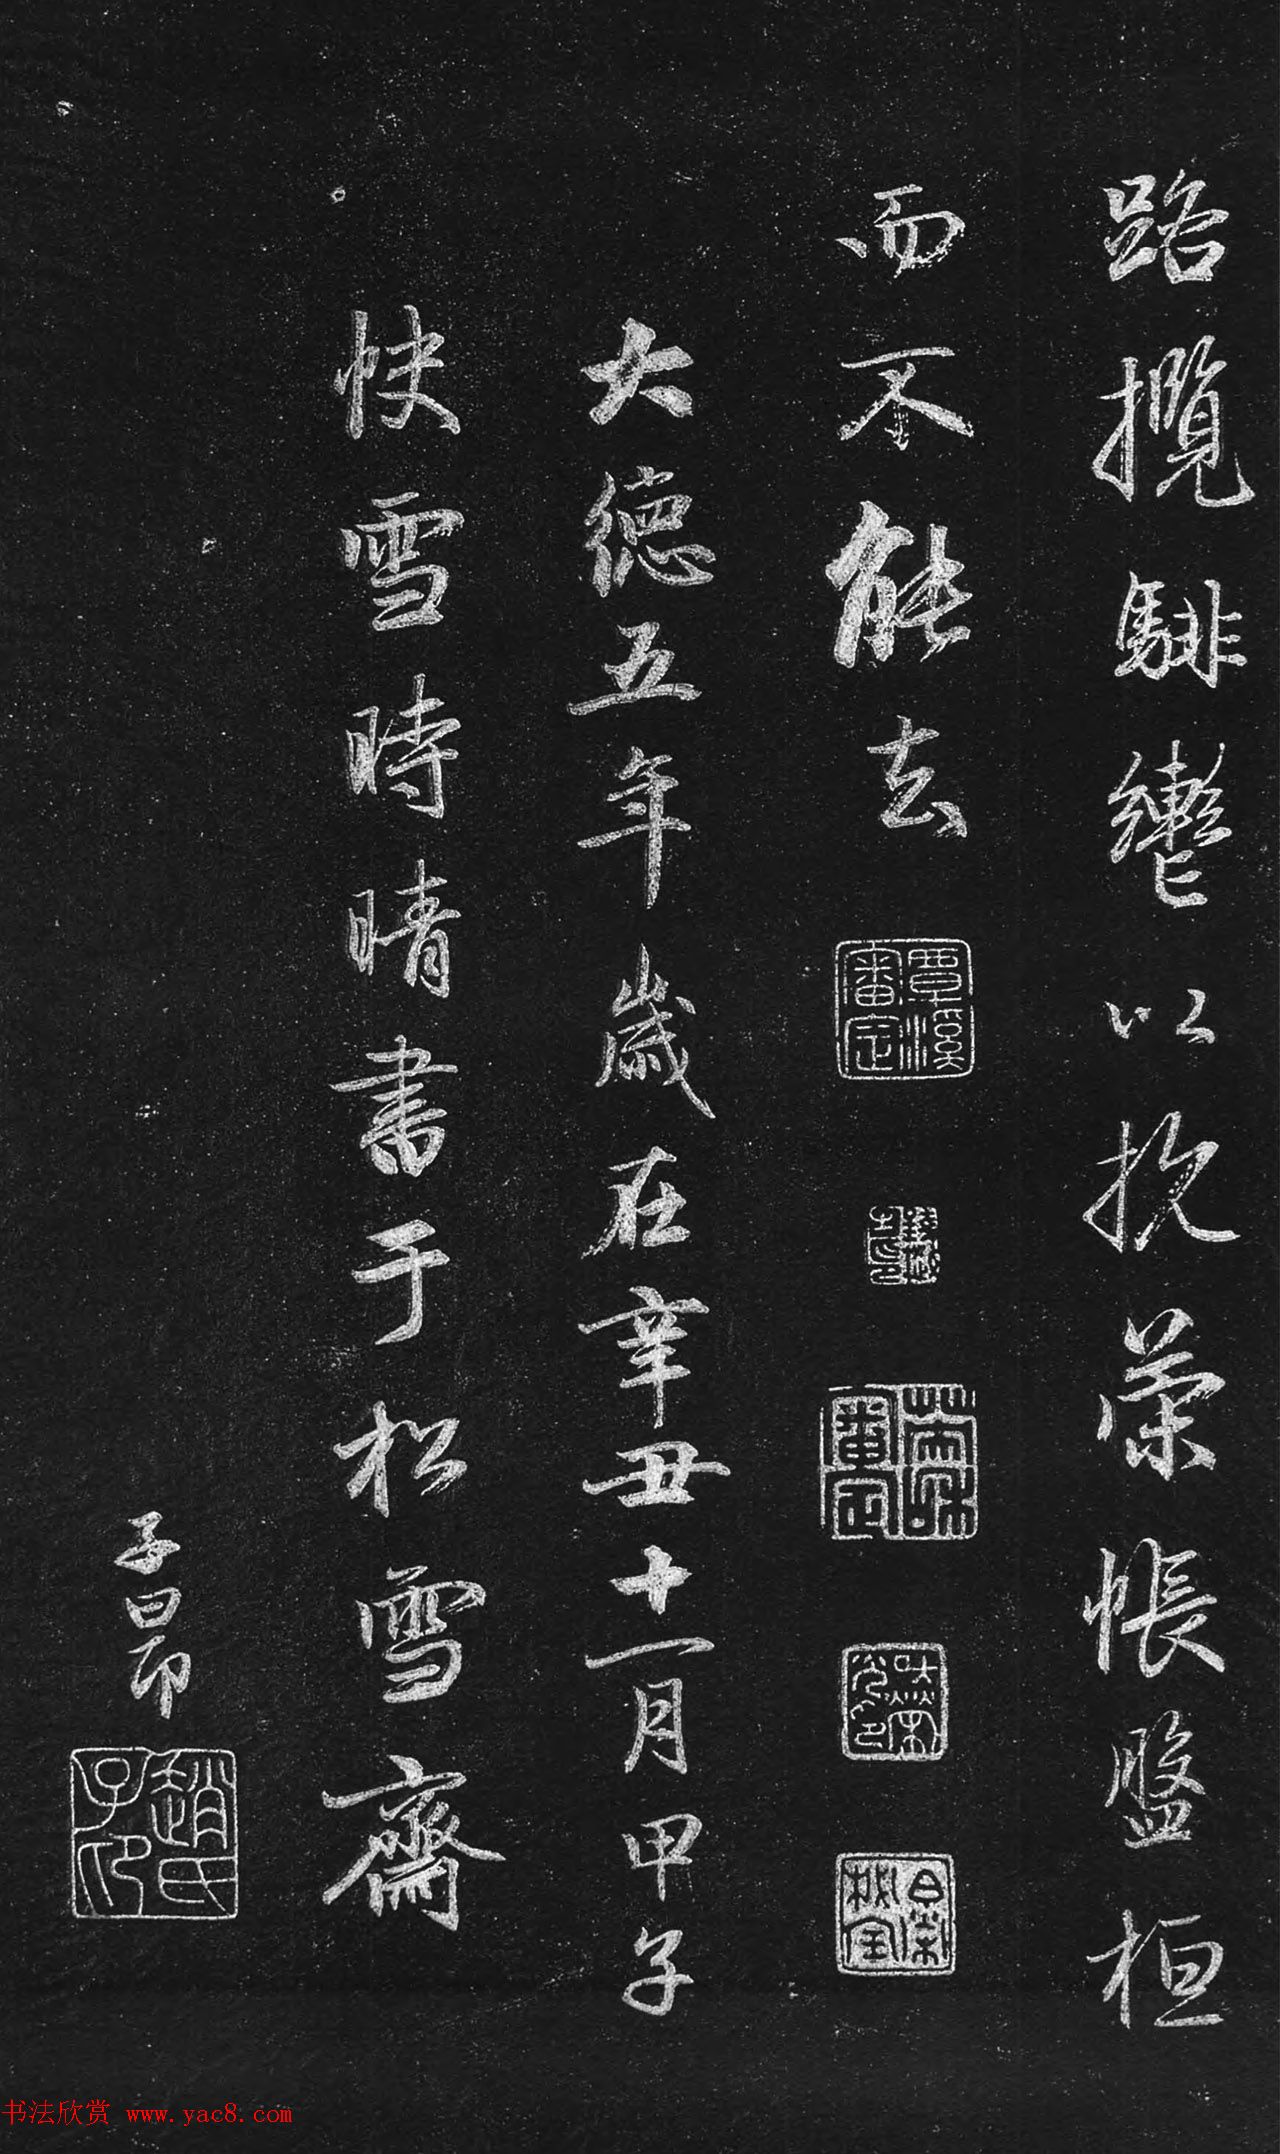 路攬騑轡以抗策悵盤桓
而不能去
覃溪審定
大德五年歲在辛丑十一月甲子
快雪時晴書于松雪齋
子昂
趙氏子印
书法欣赏 www.yac8.com